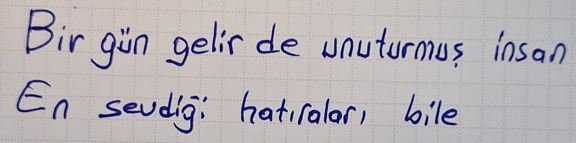 Bir gün gelir de unuturmuş insan
En sevdiği hatıraları bile